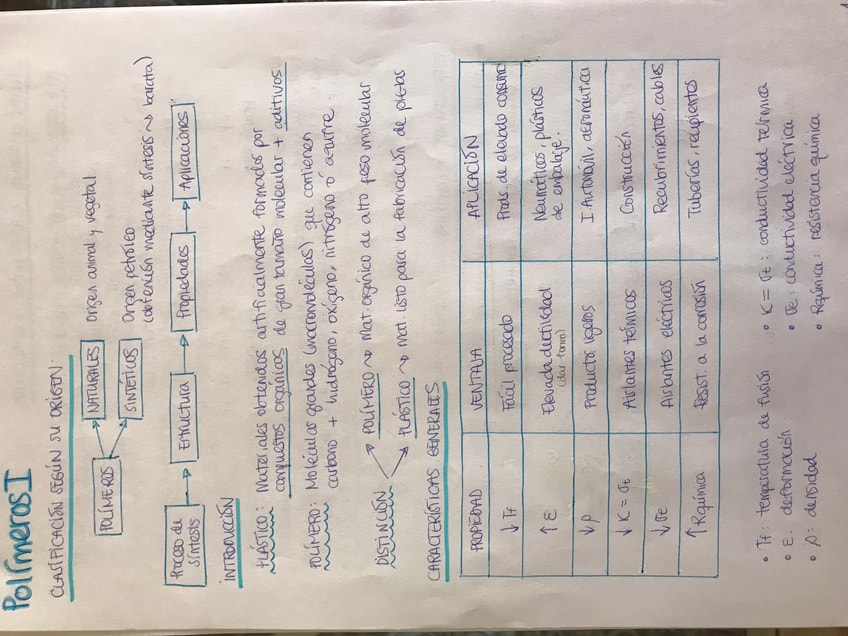 Polímeros I
CLASIFICACIÓN SEGÚN SU ORIGEN:
POLÍMEROS
NATURALES
Origen animal y vegetal
SINTÉTICOS
Origen petróleo
(obtención mediante síntesis ~> barata)
Proceso de
síntesis
Estructura
Propiedades
Aplicaciones
INTRODUCCIÓN
PLÁSTICO: Materiales obtenidos artificialmente formados por
compuestos orgánicos de gran tamaño molecular + aditivos
POLÍMERO: Moléculas grandes (macromoléculas) que contienen
carbono + hidrógeno, oxígeno, nitrógeno ó azufre
DISTINCIÓN
POLÍMERO ~> Mat. orgánico de alto peso molecular
PLÁSTICO ~> mat. listo para la fabricación de piezas
CARACTERÍSTICAS GENERALES
PROPIEDAD VENTAJA APLICACIÓN
↓ Tf Fácil procesado Prods. de elevado consumo
↑ ε Elevada ductilidad Neumáticos, plásticos
(dar forma) de embalaje.
↓ ρ Productos ligeros I Automóvil, aeronáutica
↓ K = σt Aislantes térmicos Construcción
↓ σe Aislantes eléctricos Recubrimientos, cables
↑ Rquímica Resist. a la corrosión Tuberías, recipientes
• Tf: temperatura de fusión
• ε: deformación
• ρ: densidad
• K = σt: conductividad térmica
• σe: conductividad eléctrica
• Rquímica: resistencia química